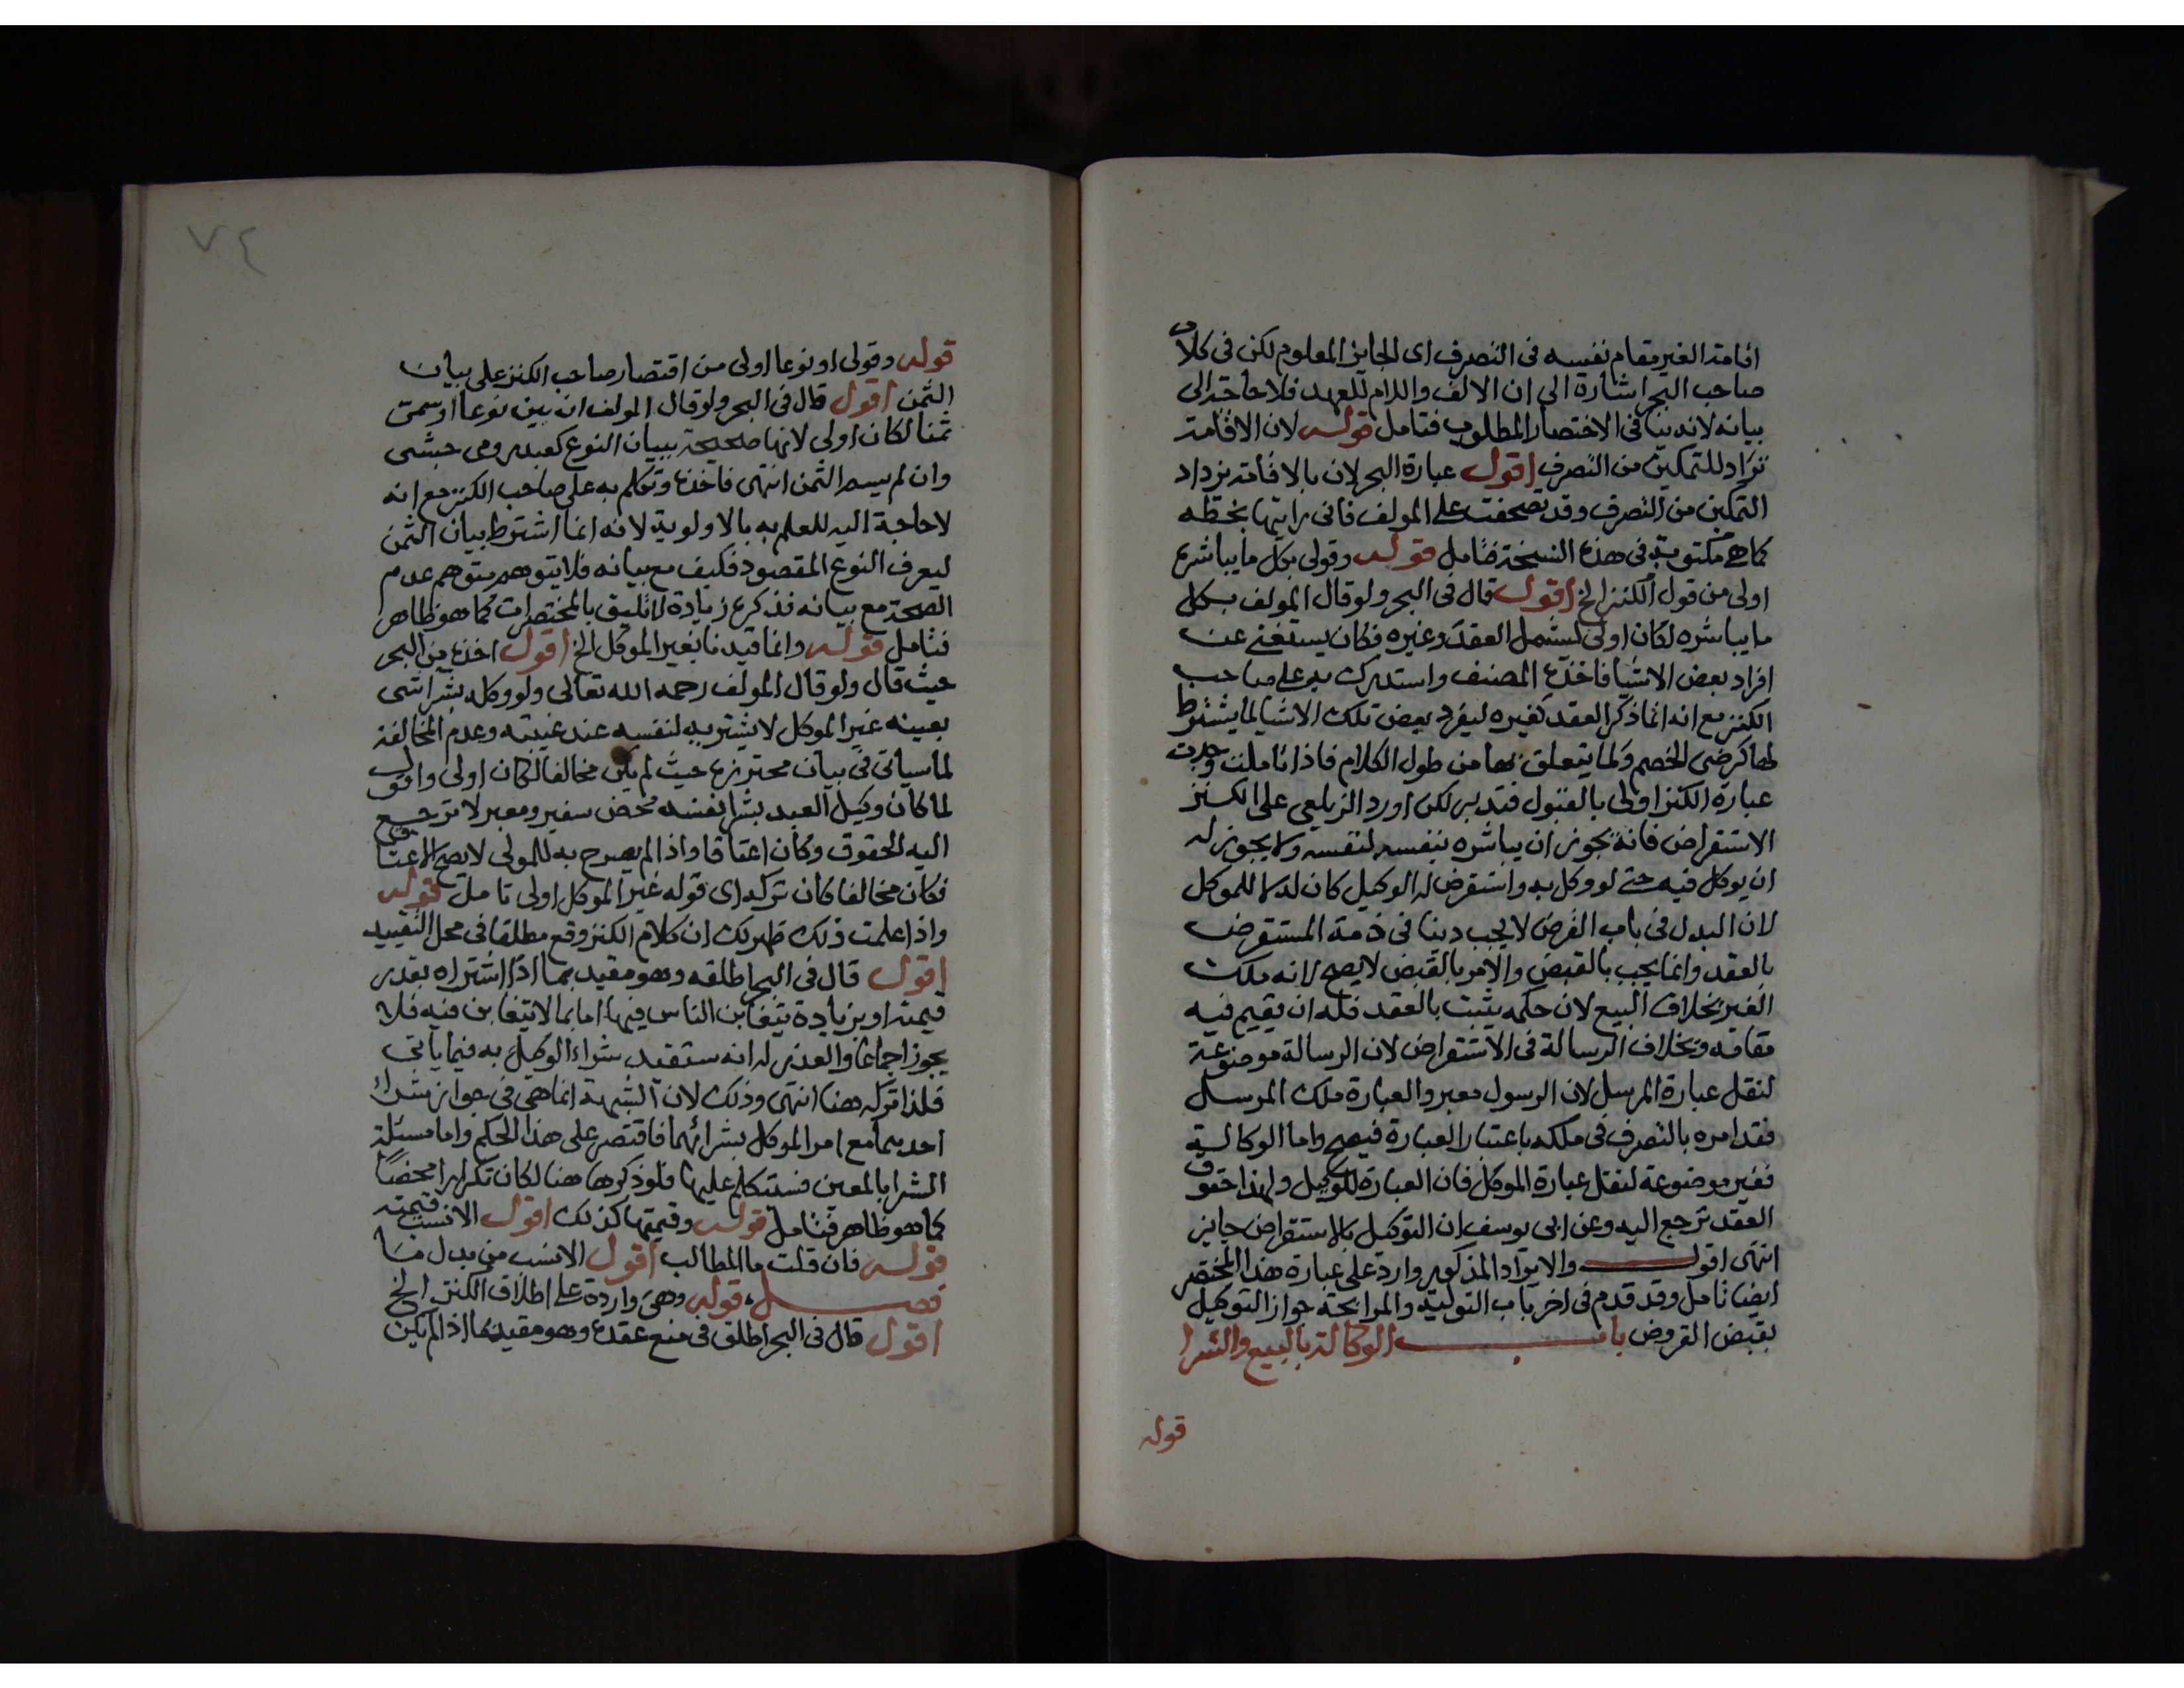 اقامة الغير مقام نفسه فى التصرف اى الجايز المعلوم لكن فى كلام
صاحب البحر اشارة الى ان الالف واللام للعهد فلا حاجة الى
بيانه لانه ينافى الاختصار المطلوب فتامل قوله لان الاقامة
تزاد للتمكين من التصرف اقول عبارة البحر لان بالاقامة يزداد
التمكين من التصرف وقد تصحفت على المولف فانى رايتها بخطه
كما هى مكتوبة فى هذه النسخة فتامل قوله وقولى بكل ما يباشره
اولى من قول الكنز الخ اقول قال فى البحر ولو قال المولف بكل
ما يباشره لكان اولى ليشمل العقد وغيره فكان يستغنى عن
افراد بعض الاشيا فاخذه المصنف واستدرك به على صاحب
الكنز مع انه انما ذكر العقد كغيره ليفرد بعض تلك الاشيا لما يشترط
لها كرضى الخصم ولما يتعلق بها من طول الكلام فاذا تاملت وجدت
عبارة الكنز اولى بالقبول فتدبر لكن اورد الزيلعى على الكنز
الاستقراض فانه يجوز ان يباشره بنفسه لنفسه ولا يجوز له
ان يوكل فيه حتى لو وكل به واستقرض له الوكيل كان له لا للموكل
لان البدل فى باب القرض لا يجب دينا فى ذمة المستقرض
بالعقد وانما يجب بالقبض والامر بالقبض لا يصح لانه ملك
الغير بخلاف البيع لان حكمه يثبت بالعقد فله ان يقيم فيه
مقامه وبخلاف الرسالة فى الاستقراض لان الرسالة موضوعة
لنقل عبارة المرسل لان الرسول معبر والعبارة ملك المرسل
فقد امره بالتصرف فى ملكه باعتبار العبارة فيصح واما الوكالة
فغير موضوعة لنقل عبارة الموكل فان العبارة للوكيل ولهذا حقوق
العقد ترجع اليه وعن ابى يوسف ان التوكيل بالاستقراض جايز
انتهى اقول والايراد المذكور وارد على عبارة هذا المختصر
ايضا تامل وقد قدم فى اخر باب التولية والمرابحة جواز التوكيل
بقبض القروض باب الوكالة بالبيع والشرا
قوله
٧٤
قوله وقولى او نوعا اولى من اقتصار صاحب الكنز على بيان
الثمن اقول قال فى البحر ولو قال المولف ان بين نوعا او سمى
ثمنا لكان اولى لانها صحيحة ببيان النوع كعبد رومى حبشى
وان لم يسم الثمن انتهى فاخذه وتكلم به على صاحب الكنز مع انه
لا حاجة اليه للعلم به بالاولوية لانه انما اشترط بيان الثمن
ليعرف النوع المقصود فكيف مع بيانه فلا يتوهم متوهم عدم
الصحة مع بيانه فذكره زيادة لا تليق بالمختصرات كما هو ظاهر
فتامل قوله وانما قيدنا بغير الموكل الخ اقول اخذه من البحر
حيث قال ولو قال المولف رحمه الله تعالى ولو وكله بشرا شى
بعينه غير الموكل لا يشتريه لنفسه عند غيبته وعدم المخالفة
لما سياتى فى بيان محترزه حيث لم يكن مخالفا لكان اولى واقول
لما كان وكيل العبد بشرا نفسه محض سفير ومعبر لا ترجع
اليه الحقوق وكان اعتاقا واذا لم يصرح به للمولى لا يصح الاعتاق
فكان مخالفا كان تركه اى قوله غير الموكل اولى تامل قوله
واذا علمت ذلك ظهر لك ان كلام الكنز وقع مطلقا فى محل التقييد
اقول قال فى البحر اطلقه وهو مقيد بما اذا اشتراه بقدر
قيمته او بزيادة يتغابن الناس فيها اما بما لا يتغابن فيه فلا
يجوز اجماعا والعذر له انه سيقيد شراء الوكيل به فيما ياتى
فلذا تركه هنا انتهى وذلك لان الشبهة انما هى فى جواز شراء
احدهما مع امر الموكل بشرائهما فاقتصر على هذا الحكم واما مسئلة
الشرا بالمعين فسنتكلم عليها فلو ذكرها هنا لكان تكرارا محضا
كما هو ظاهر فتامل قوله وقيمتها كذلك اقول الانسب قيمته
قوله فان قلت ما المطالب اقول الانسب من بدل ما
فصل قوله وهى واردة على اطلاق الكنز الخ
اقول قال فى البحر اطلق فى منع عقده وهو مقيد بما اذا لم يكن